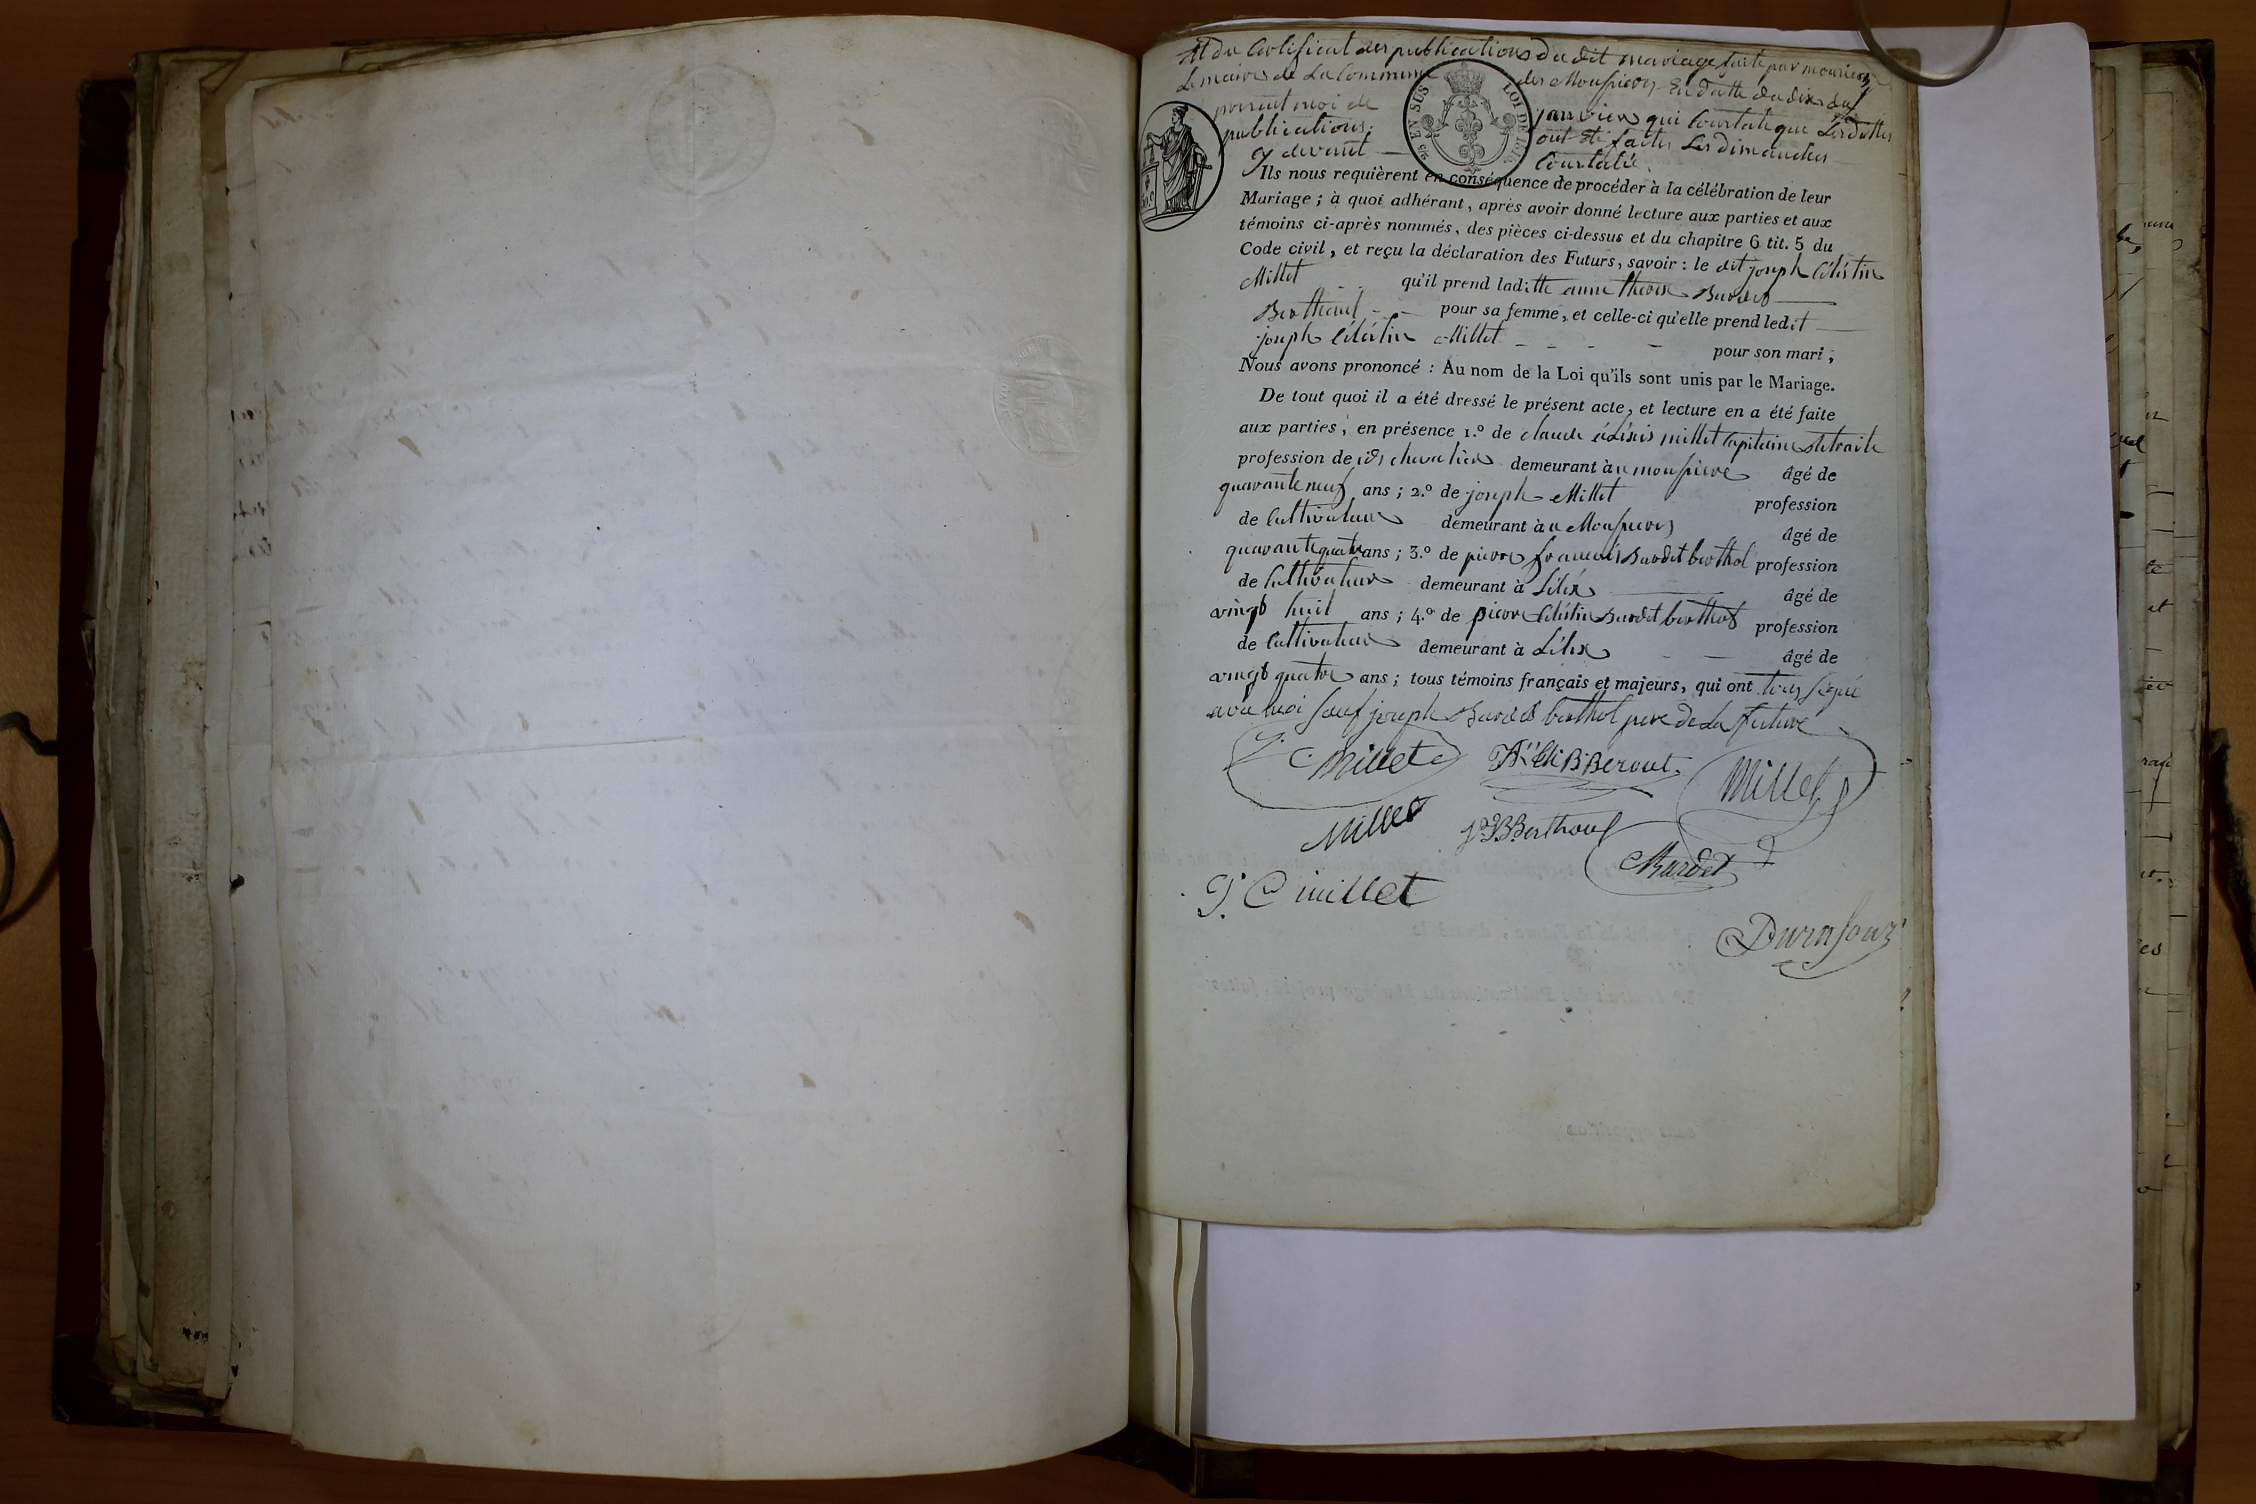 Et du Certificat des publications du dit mariage faite par monsieur
Le maire de La Commune des Moussieres En datte du dix du
present moi de janvier qui Constate que Lesdittes
publications ont Eté faites Les Dimanches
cy devant Constaté
EN SUS LOI DE 1816
Ils nous requièrent en conséquence de procéder à la célébration de leur
Mariage ; à quoi adhérant, après avoir donné lecture aux parties et aux
témoins ci-après nommés, des pièces ci-dessus et du chapitre 6 tit. 5 du
Code civil, et reçu la déclaration des Futurs, savoir : le dit joseph Célestin
Millet qu'il prend laditte anne therese Burdet
pour sa femme, et celle-ci qu'elle prend ledit
joseph Célestin Millet pour son mari ;
Nous avons prononcé : Au nom de la Loi qu'ils sont unis par le Mariage.
De tout quoi il a été dressé le présent acte, et lecture en a été faite
aux parties, en présence 1.º de claude millet Capitaine Retraité
profession de chevalier demeurant à âgé de
quarante neuf ans ; 2.º de joseph Millet profession
de Cultivateur demeurant à âgé de
quarante quatre ans ; 3.º de pierre françois Burdet berthol profession
de Cultivateur demeurant à Lélex âgé de
vingt huit ans ; 4.º de pierre Celéstin Burdet berthol profession
de Cultivateur demeurant à Lélex âgé de
vingt quatre ans ; tous témoins français et majeurs, qui ont tous signé
avec moi sauf joseph Burdet berthol pere de La future
Millet Millet
Millet
Burdet
millet